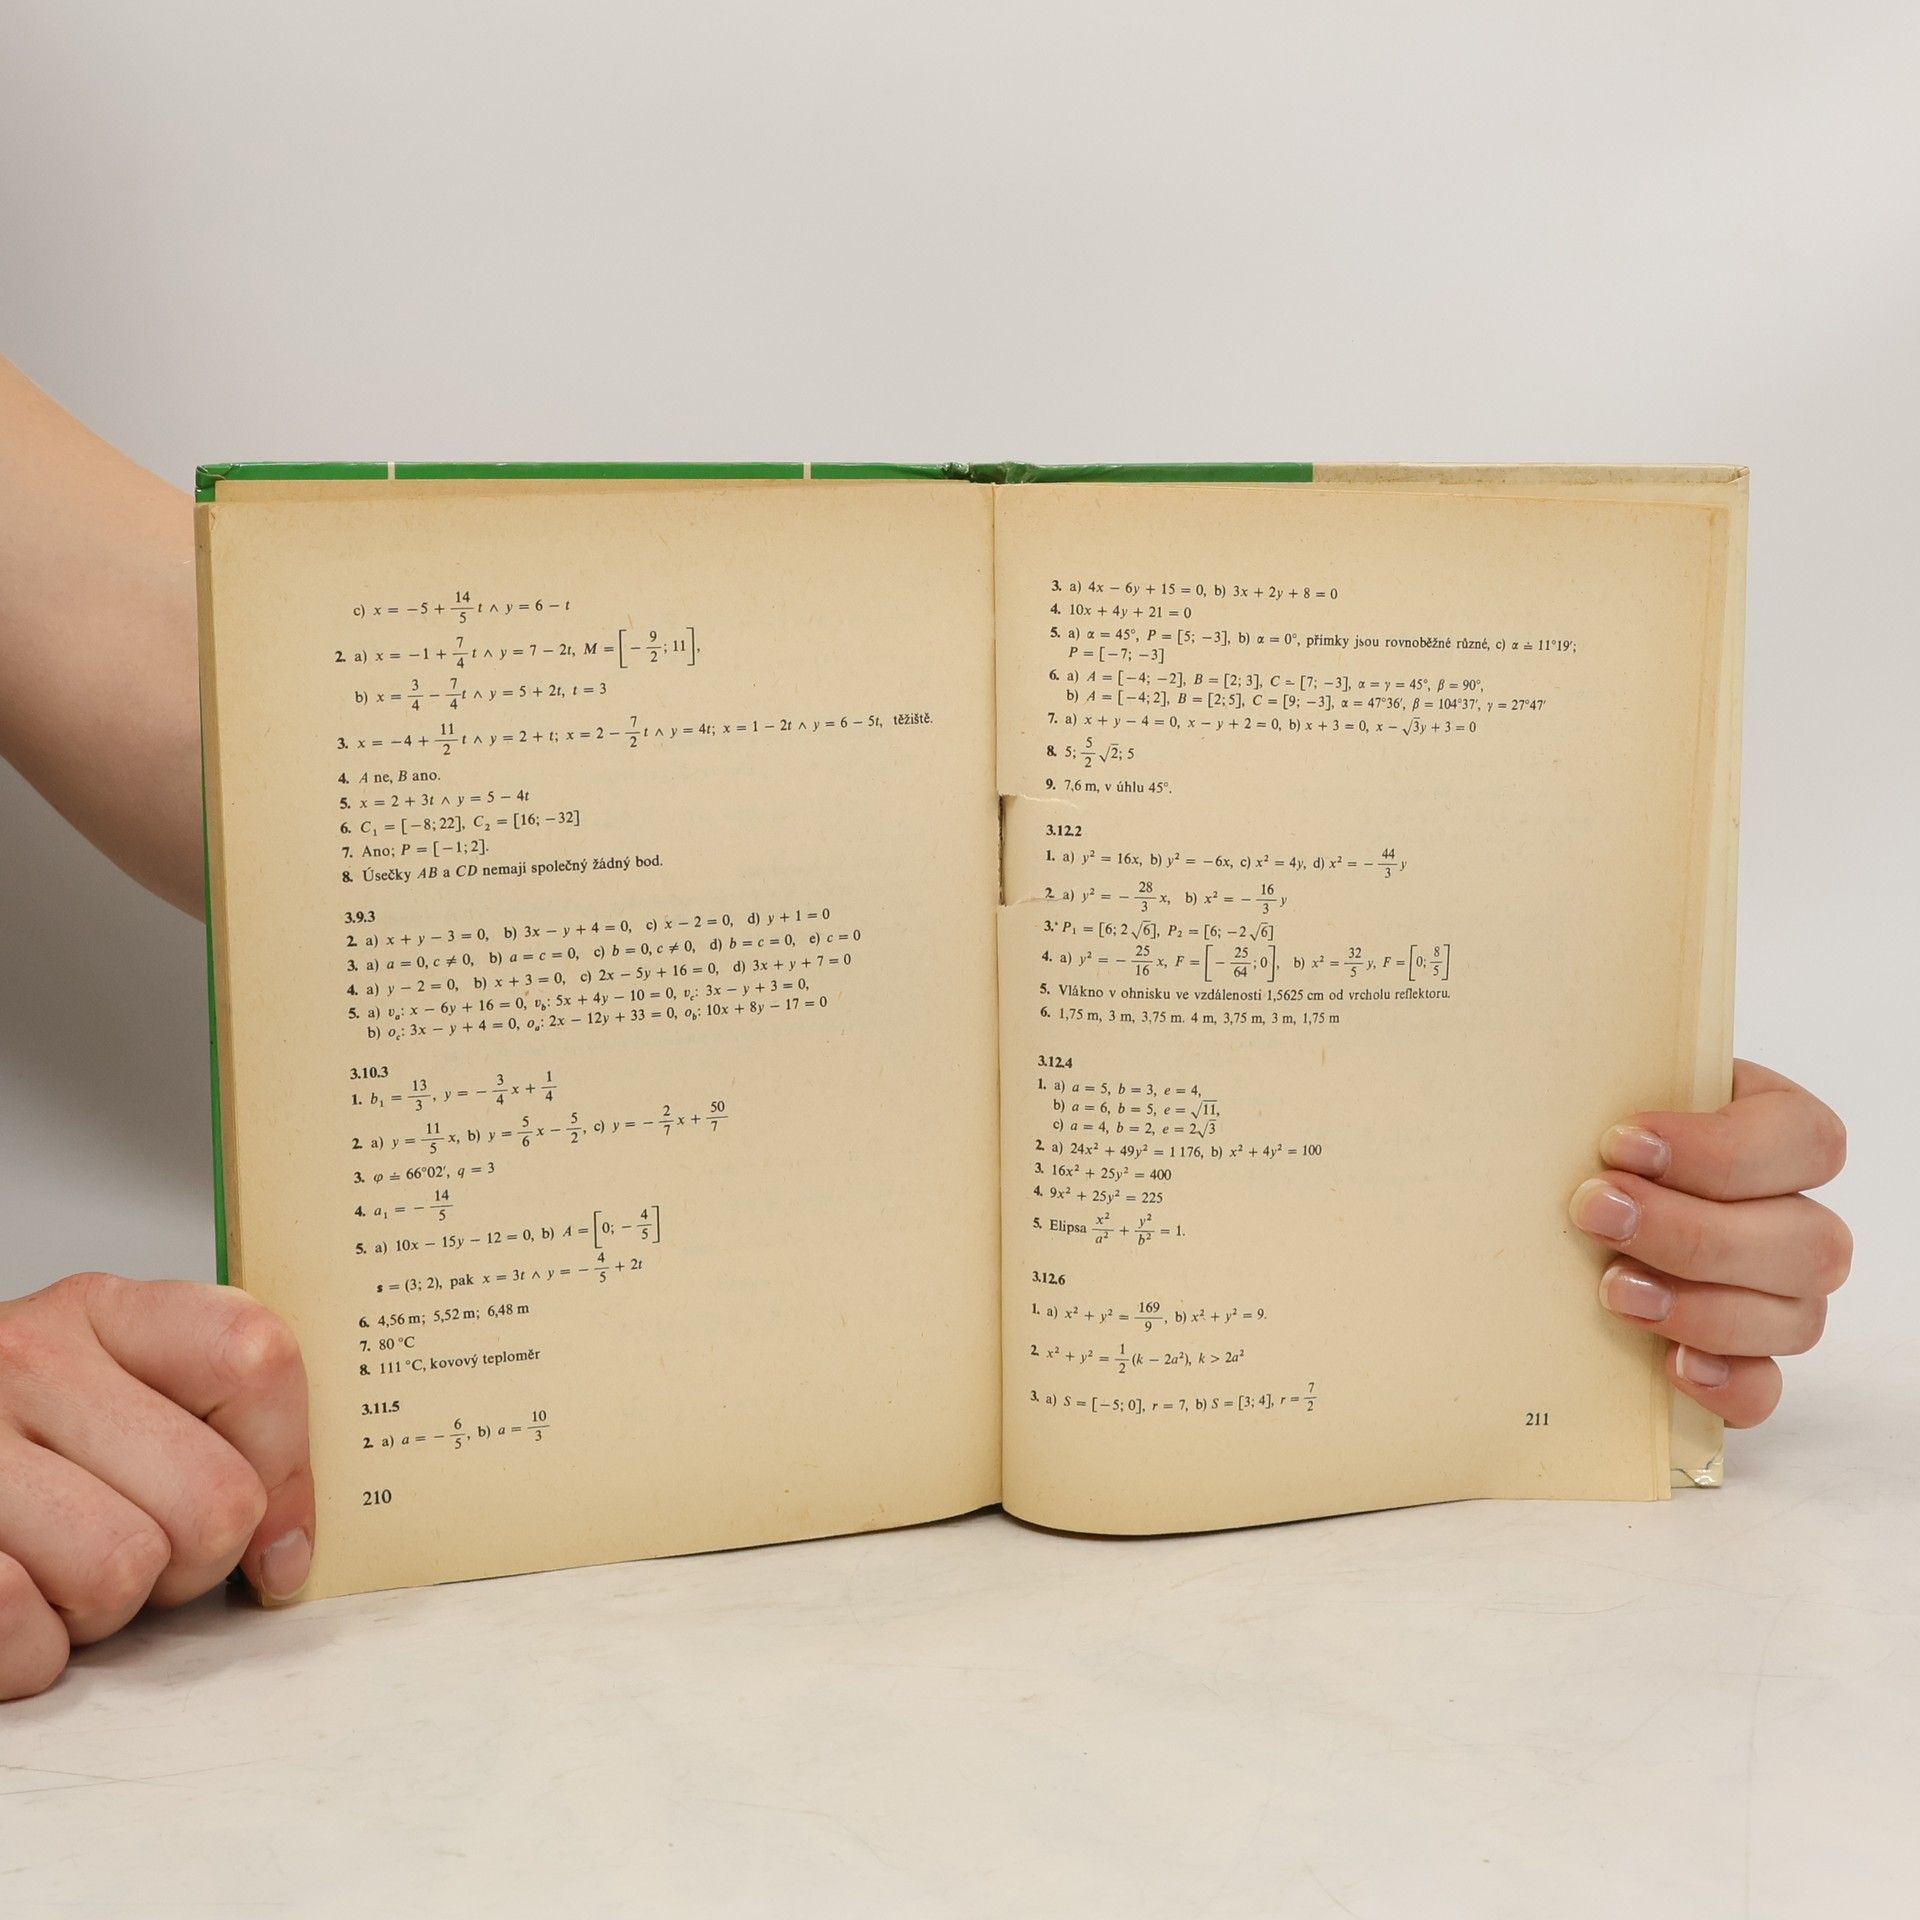 c) x = −5 + 14/5 t ∧ y = 6 − t
2. a) x = −1 + 7/4 t ∧ y = 7 − 2t, M = [−9/2; 11],
b) x = 3/4 − 7/4 t ∧ y = 5 + 2t, t = 3
3. x = −4 + 11/2 t ∧ y = 2 + t; x = 2 − 7/2 t ∧ y = 4t; x = 1 − 2t ∧ y = 6 − 5t, těžiště.
4. A ne, B ano.
5. x = 2 + 3t ∧ y = 5 − 4t
6. C₁ = [−8; 22], C₂ = [16; −32]
7. Ano; P = [−1; 2].
8. Úsečky AB a CD nemají společný žádný bod.
3.9.3
2. a) x + y − 3 = 0, b) 3x − y + 4 = 0, c) x − 2 = 0, d) y + 1 = 0
3. a) a = 0, c ≠ 0, b) a = c = 0, c) b = 0, c ≠ 0, d) b = c = 0, e) c = 0
4. a) y − 2 = 0, b) x + 3 = 0, c) 2x − 5y + 16 = 0, d) 3x + y + 7 = 0
5. a) vₐ: x − 6y + 16 = 0, v_b: 5x + 4y − 10 = 0, v_c: 3x − y + 3 = 0,
b) o_c: 3x − y + 4 = 0, oₐ: 2x − 12y + 33 = 0, o_b: 10x + 8y − 17 = 0
3.10.3
1. b₁ = 13/3, y = −3/4 x + 1/4
2. a) y = 11/5 x, b) y = 5/6 x − 5/2, c) y = −2/7 x + 50/7
3. φ ≐ 66°02′, q = 3
4. a₁ = −14/5
5. a) 10x − 15y − 12 = 0, b) A = [0; −4/5]
s = (3; 2), pak x = 3t ∧ y = −4/5 + 2t
6. 4,56 m; 5,52 m; 6,48 m
7. 80 °C
8. 111 °C, kovový teploměr
3.11.5
2. a) a = −6/5, b) a = 10/3
210
3. a) 4x − 6y + 15 = 0, b) 3x + 2y + 8 = 0
4. 10x + 4y + 21 = 0
5. a) α = 45°, P = [5; −3], b) α = 0°, přímky jsou rovnoběžné různé, c) α ≐ 11°19′;
P = [−7; −3]
6. a) A = [−4; −2], B = [2; 3], C = [7; −3], α = γ = 45°, β = 90°,
b) A = [−4; 2], B = [2; 5], C = [9; −3], α = 47°36′, β = 104°37′, γ = 27°47′
7. a) x + y − 4 = 0, x − y + 2 = 0, b) x + 3 = 0, x − √3y + 3 = 0
8. 5; 5/2 √2; 5
9. 7,6 m, v úhlu 45°.
3.12.2
1. a) y² = 16x, b) y² = −6x, c) x² = 4y, d) x² = −44/3 y
2. a) y² = −28/3 x, b) x² = −16/3 y
3. P₁ = [6; 2√6], P₂ = [6; −2√6]
4. a) y² = −25/16 x, F = [−25/64; 0], b) x² = 32/5 y, F = [0; 8/5]
5. Vlákno v ohnisku ve vzdálenosti 1,5625 cm od vrcholu reflektoru.
6. 1,75 m, 3 m, 3,75 m. 4 m, 3,75 m, 3 m, 1,75 m
3.12.4
1. a) a = 5, b = 3, e = 4,
b) a = 6, b = 5, e = √11,
c) a = 4, b = 2, e = 2√3
2. a) 24x² + 49y² = 1 176, b) x² + 4y² = 100
3. 16x² + 25y² = 400
4. 9x² + 25y² = 225
5. Elipsa x²/a² + y²/b² = 1.
3.12.6
1. a) x² + y² = 169/9, b) x² + y² = 9.
2. x² + y² = 1/2 (k − 2a²), k > 2a²
3. a) S = [−5; 0], r = 7, b) S = [3; 4], r = 7/2
211